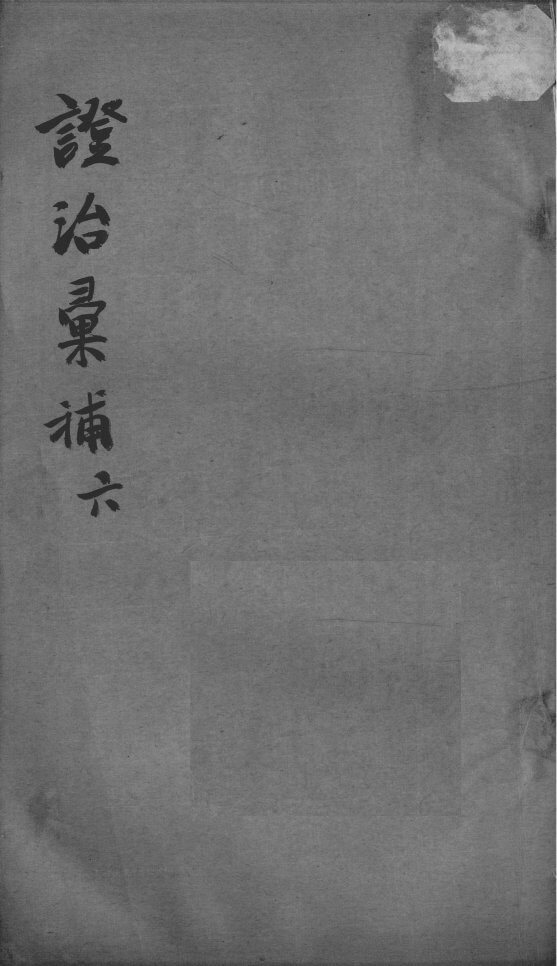 證治彙補六